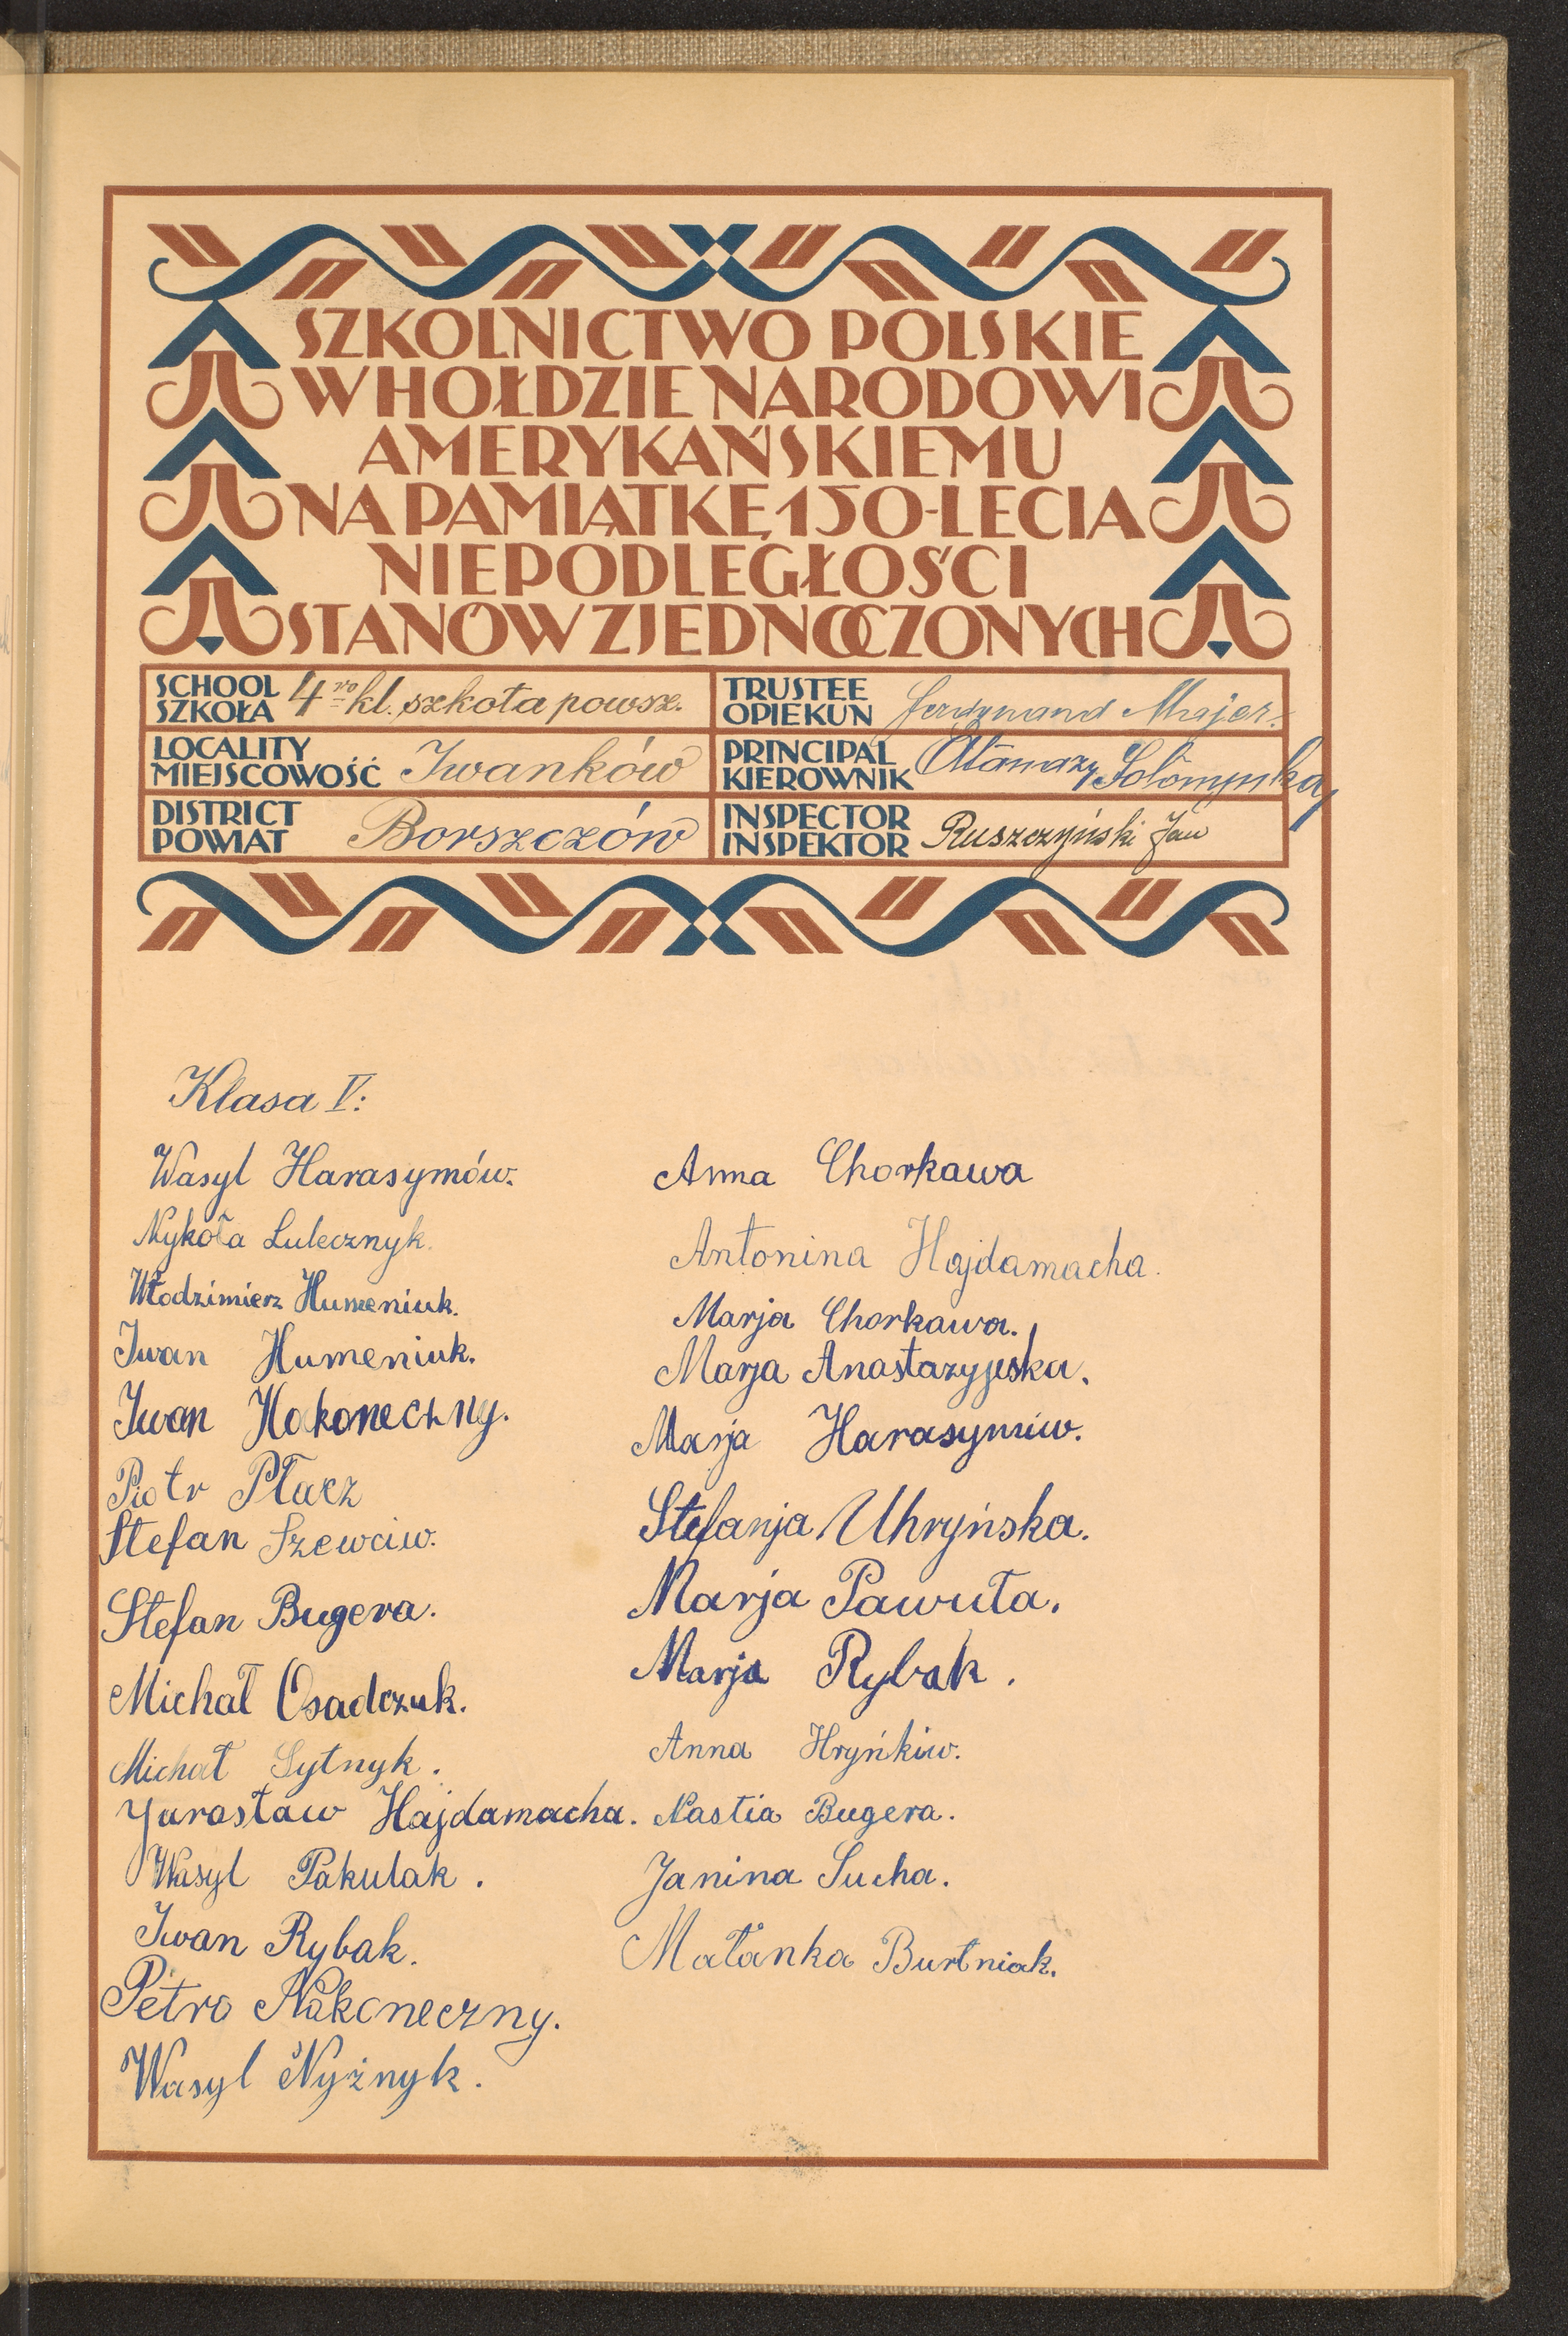 SZKOLNICTWO POLSKIE
W HOŁDZIE NARODOWI
AMERYKAŃSKIEMU
NA PAMIĄTKĘ 150-LECIA
NIEPODLEGŁOŚCI
STANÓW ZJEDNOCZONYCH
SCHOOL
SZKOŁA
4 ro kl. szkoła powsz.
TRUSTEE
OPIEKUN
Ferdynand Majer.
LOCALITY
MIEJSCOWOŚĆ
Iwanków
PRINCIPAL
KIEROWNIK
Atanazy Sołomynka
DISTRICT
POWIAT
Borszczów
INSPECTOR
INSPEKTOR
Ruszczyński Jan
Klasa V:
Wasyl Harasymów.
Nykoła Lulecznyk.
Włodzimierz Humeniuk.
Iwan Humeniuk.
Iwan Nokoneczny.
Piotr Płacz
Stefan Szewciw.
Stefan Bugera.
Michał Osadczuk.
Michał Sytnyk.
Yarosław Hajdamacha.
Wasyl Pakulak.
Iwan Rybak.
Petro Nakoneczny.
Wasyl Nyżnyk.
Anna Chorkawa
Antonina Hajdamacha.
Marja Chorkawa.
Marja Anastazyjeska.
Marja Harasymiw.
Stefanja Uhryńska.
Marja Pawuła.
Marja Rybak.
Anna Hryńkiw.
Nastia Bugera.
Janina Sucha.
Małanka Burtniak.